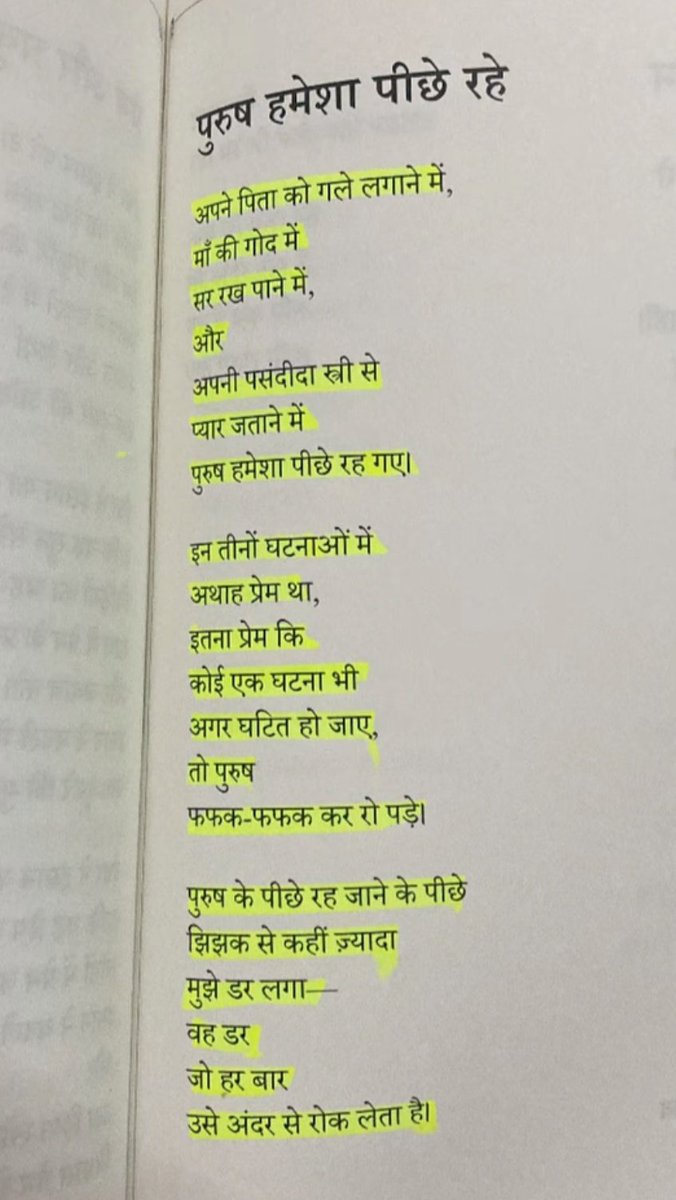 पुरुष हमेशा पीछे रहे
अपने पिता को गले लगाने में,
माँ की गोद में
सर रख पाने में,
और
अपनी पसंदीदा स्त्री से
प्यार जताने में
पुरुष हमेशा पीछे रह गए।
इन तीनों घटनाओं में
अथाह प्रेम था,
इतना प्रेम कि
कोई एक घटना भी
अगर घटित हो जाए,
तो पुरुष
फफक-फफक कर रो पड़े।
पुरुष के पीछे रह जाने के पीछे
झिझक से कहीं ज़्यादा
मुझे डर लगा—
वह डर
जो हर बार
उसे अंदर से रोक लेता है।